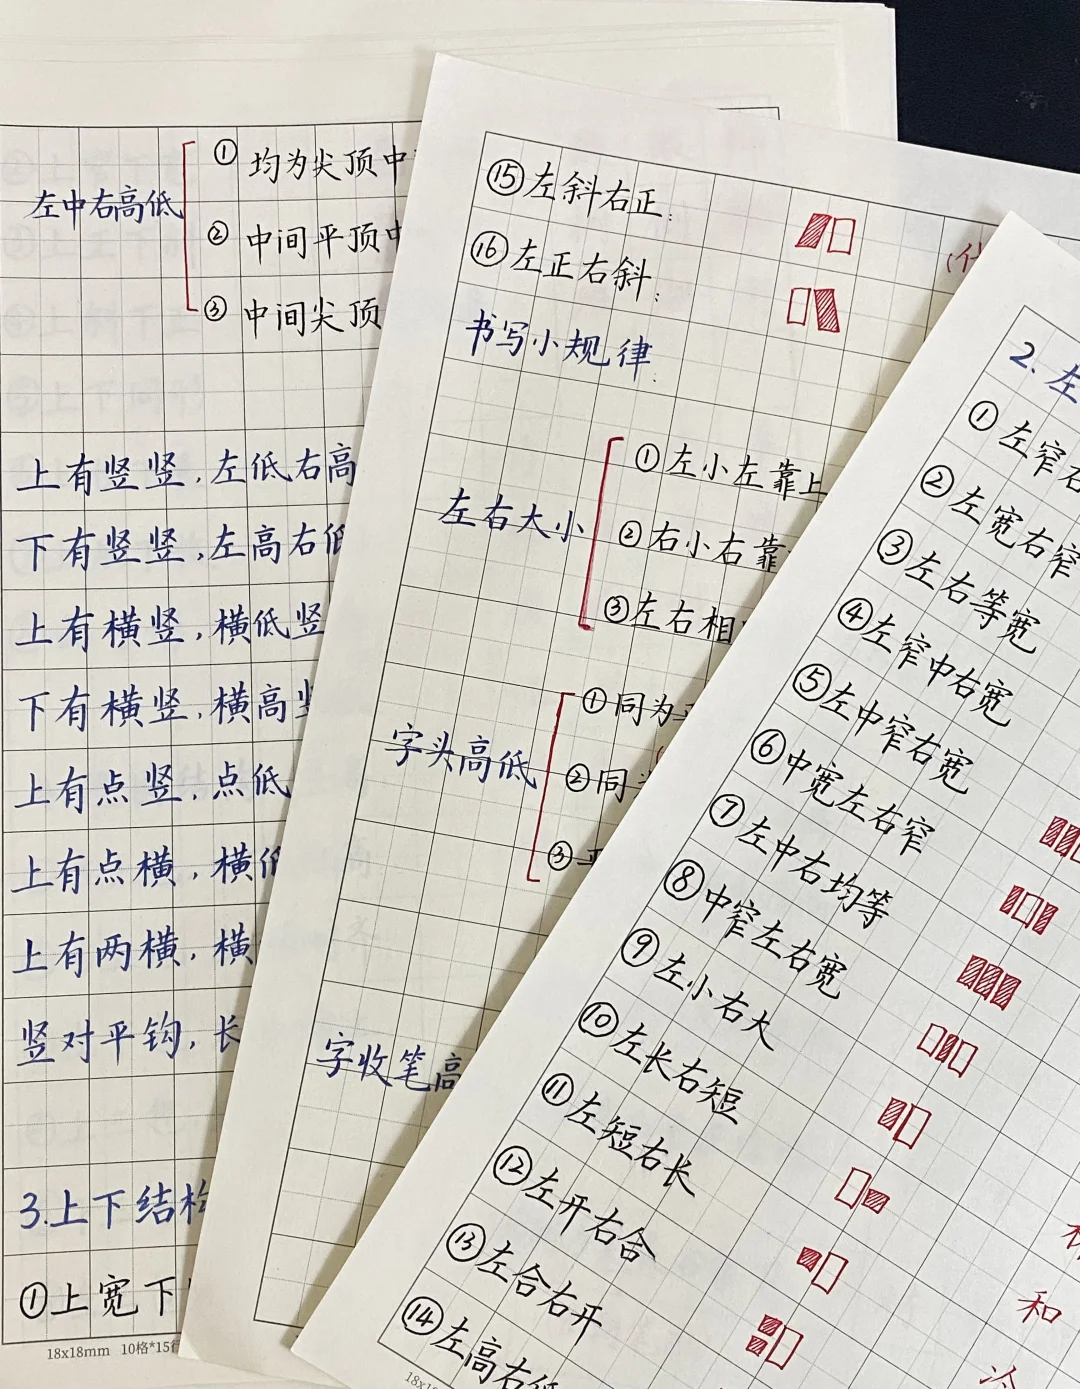 左中右高低
①均为尖顶中
②中间平顶中
③中间尖顶
上有竖竖,左低右高
下有竖竖,左高右低
上有横竖,横低竖
下有横竖,横高竖
上有点竖,点低
上有点横,横低
上有两横,横
竖对平钩,长
3.上下结构
①上宽下
18x18mm 10格*15行
⑮左斜右正:
⑯左正右斜:
书写小规律:
左右大小
①左小左靠上
②右小右靠
③左右相
字头高低
①同为平
②同
③平
字收笔高
2.左
①左窄右
②左宽右窄
③左右等宽
④左窄中右宽
⑤左中窄右宽
⑥中宽左右窄
⑦左中右均等
⑧中窄左右宽
⑨左小右大
⑩左长右短
⑪左短右长
⑫左开右合
⑬左合右开
⑭左高右低
和
冷